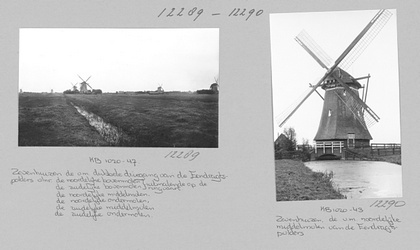 12289 - 12290
HB 1020-47
12289
Zevenhuizen de v.m. dubbele driegang van de Eendragts-
polders v.l.n.r. de noordelijke bovenmolen
de zuidelijke bovenmolen
de noordelijke middelmolen
de noordelijke ondermolen
de zuidelijke middelmolen
de zuidelijke ondermolen.
HB 1020-43
12290
Zevenhuizen de v.m. noordelijke
middelmolen van de Eendragts-
polders